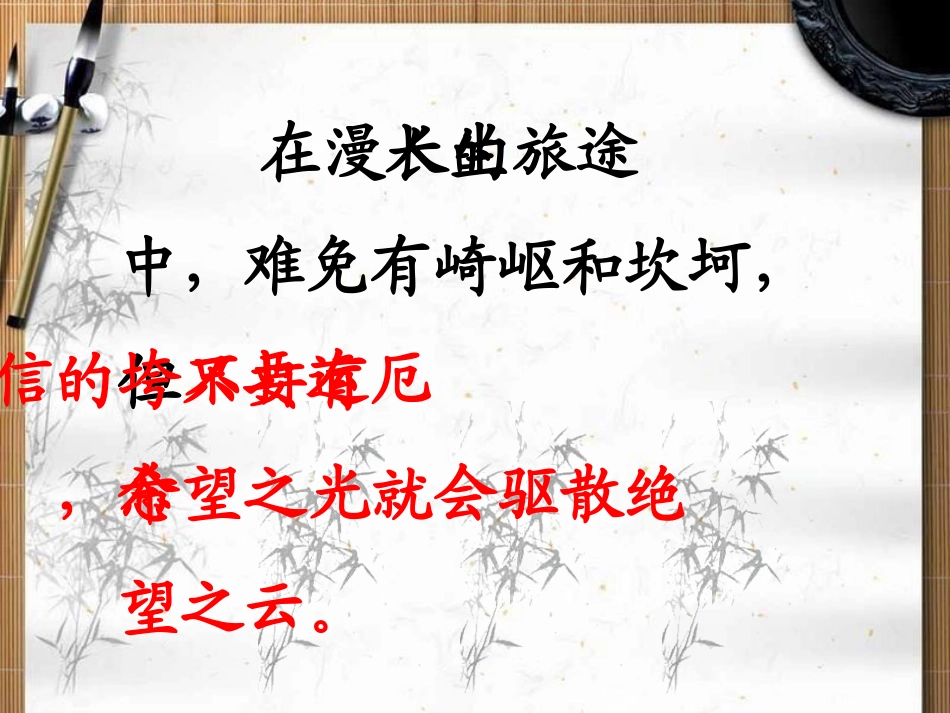 在漫长的旅途
中，难免有崎岖和坎坷，
信的厄
，希望之光就会驱散绝
望之云。